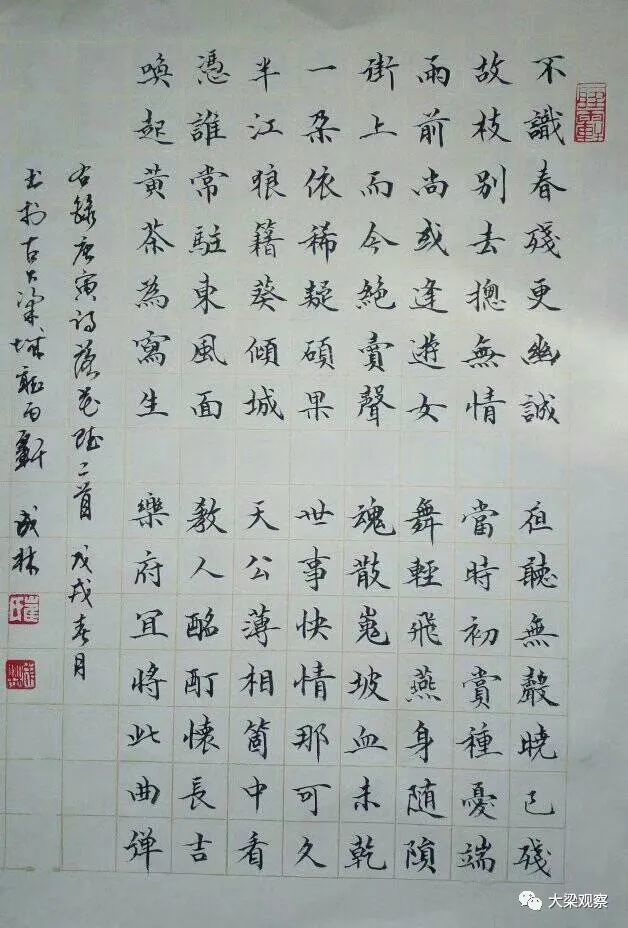 不識春殘更幽誠
故枝別去摠無情
雨前尚或逢遊女
街上而今絕賣聲
一朵依稀疑碩果
半江狼籍葵傾城
憑誰常駐東風面
喚起黃茶為寫生
亱聽無聲曉已殘
當時初賞種憂端
舞輕飛燕身随隕
魂散嵬坡血未乾
世事快情那可久
天公薄相箇中看
教人酩酊懷長吉
樂府宜將此曲弹
右錄唐寅詩落花 二首 戊戌春月
书於古大梁城 雨軒 成林
大梁观察